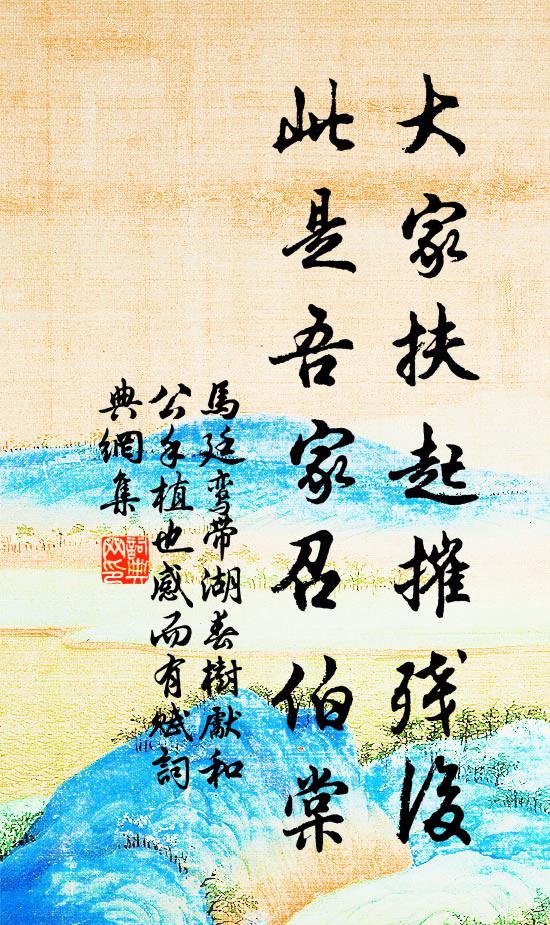 大家扶起摧残後
此是吾家召伯棠
馬廷鸾带湖春樹獻和
公手植也感而有赋詞
典網集
詞典
網印